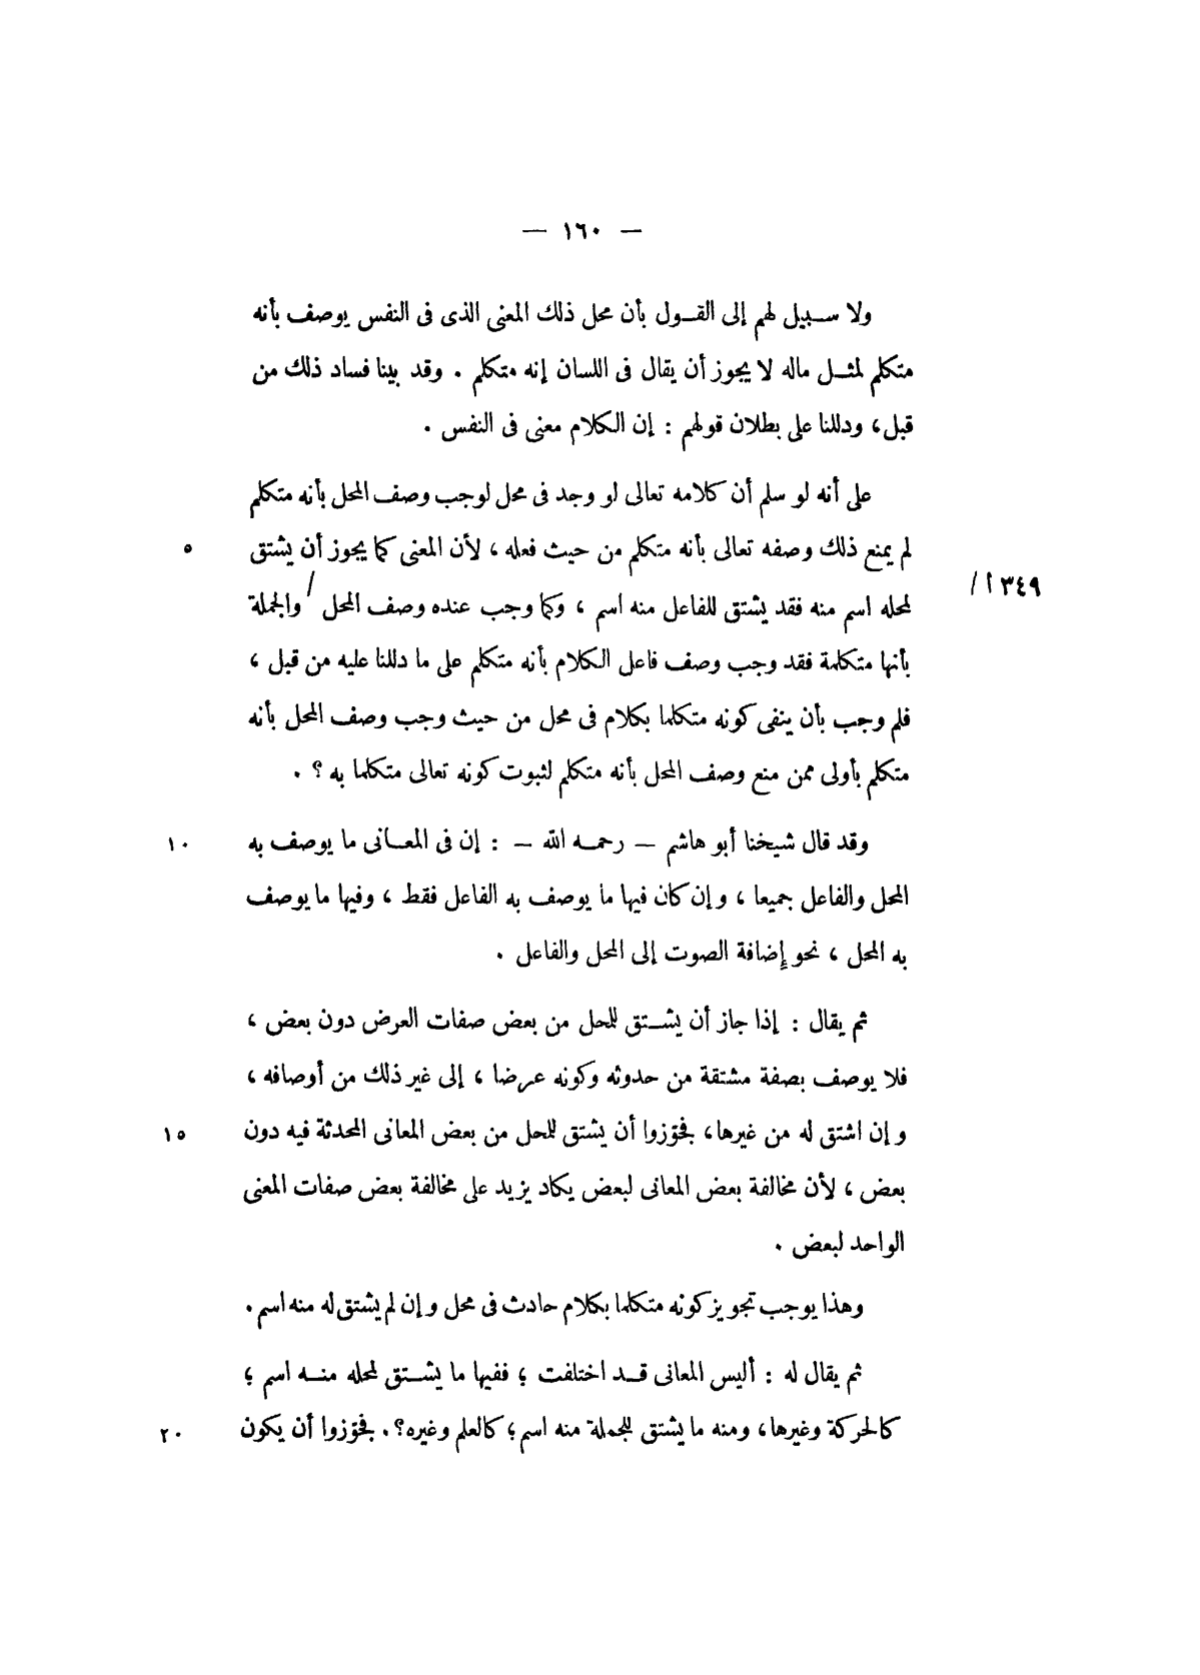 — ١٦٠ —
ولا سبيل لهم إلى القول بأن محل ذلك المعنى الذى فى النفس يوصف بأنه
متكلم لمثل ماله لا يجوز أن يقال فى اللسان إنه متكلم . وقد بينا فساد ذلك من
قبل، ودللنا على بطلان قولهم : إن الكلام معنى فى النفس .
على أنه لو سلم أن كلامه تعالى لو وجد فى محل لوجب وصف المحل بأنه متكلم
لم يمنع ذلك وصفه تعالى بأنه متكلم من حيث فعله ، لأن المعنى كما يجوز أن يشتق ٥
٣٤٩ ا/
لمحله اسم منه فقد يشتق للفاعل منه اسم ، وكما وجب عنده وصف المحل / والجملة
بأنها متكلمة فقد وجب وصف فاعل الكلام بأنه متكلم على ما دللنا عليه من قبل ،
فلم وجب بأن ينفى كونه متكلما بكلام فى محل من حيث وجب وصف المحل بأنه
متكلم بأولى ممن منع وصف المحل بأنه متكلم لثبوت كونه تعالى متكلما به ؟ .
وقد قال شيخنا أبو هاشم — رحمه الله — : إن فى المعانى ما يوصف به ١٠
المحل والفاعل جميعا ، وإن كان فيها ما يوصف به الفاعل فقط ، وفيها ما يوصف
به المحل ، نحو إضافة الصوت إلى المحل والفاعل .
ثم يقال : إذا جاز أن يشتق للمحل من بعض صفات العرض دون بعض ،
فلا يوصف بصفة مشتقة من حدوثه وكونه عرضا ، إلى غير ذلك من أوصافه ،
وإن اشتق له من غيرها، فجوّزوا أن يشتق للمحل من بعض المعانى المحدثة فيه دون ١٥
بعض ، لأن مخالفة بعض المعانى لبعض يكاد يزيد على مخالفة بعض صفات المعنى
الواحد لبعض .
وهذا يوجب تجويز كونه متكلما بكلام حادث فى محل وإن لم يشتق له منه اسم .
ثم يقال له : أليس المعانى قد اختلفت ؛ ففيها ما يشتق لمحله منه اسم ؛
كالحركة وغيرها، ومنه ما يشتق للجملة منه اسم؛ كالعلم وغيره؟ . فجوّزوا أن يكون ٢٠